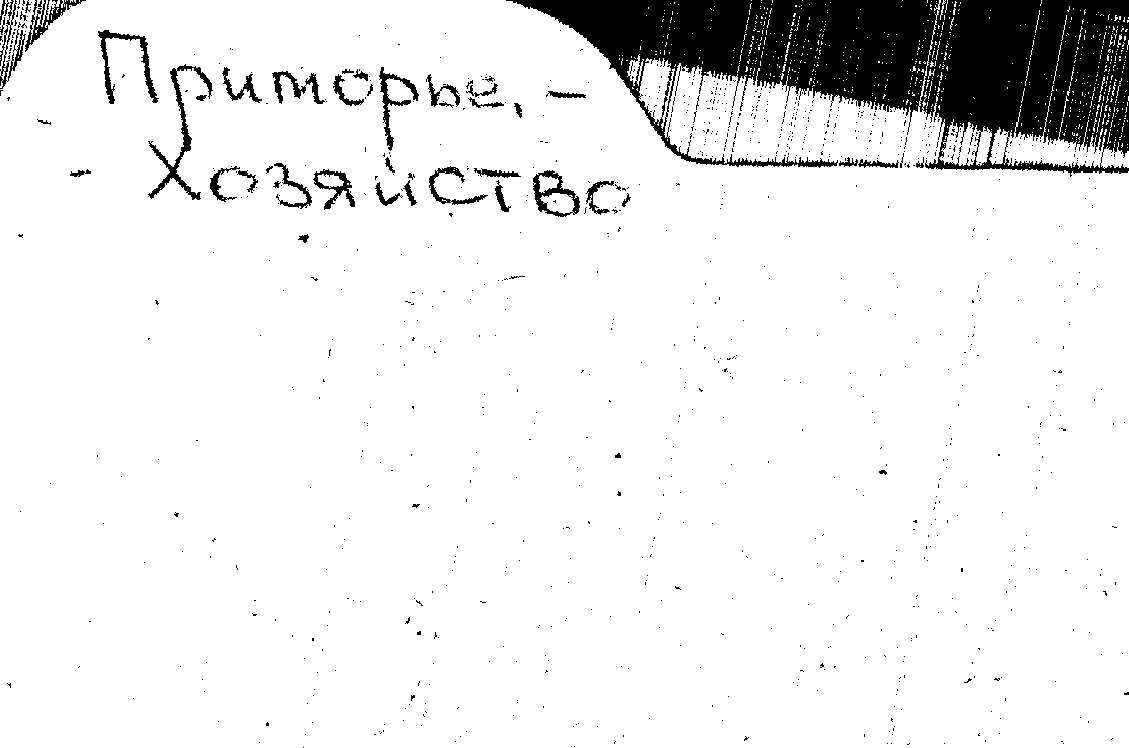 Приморье, -
- Хозяйство